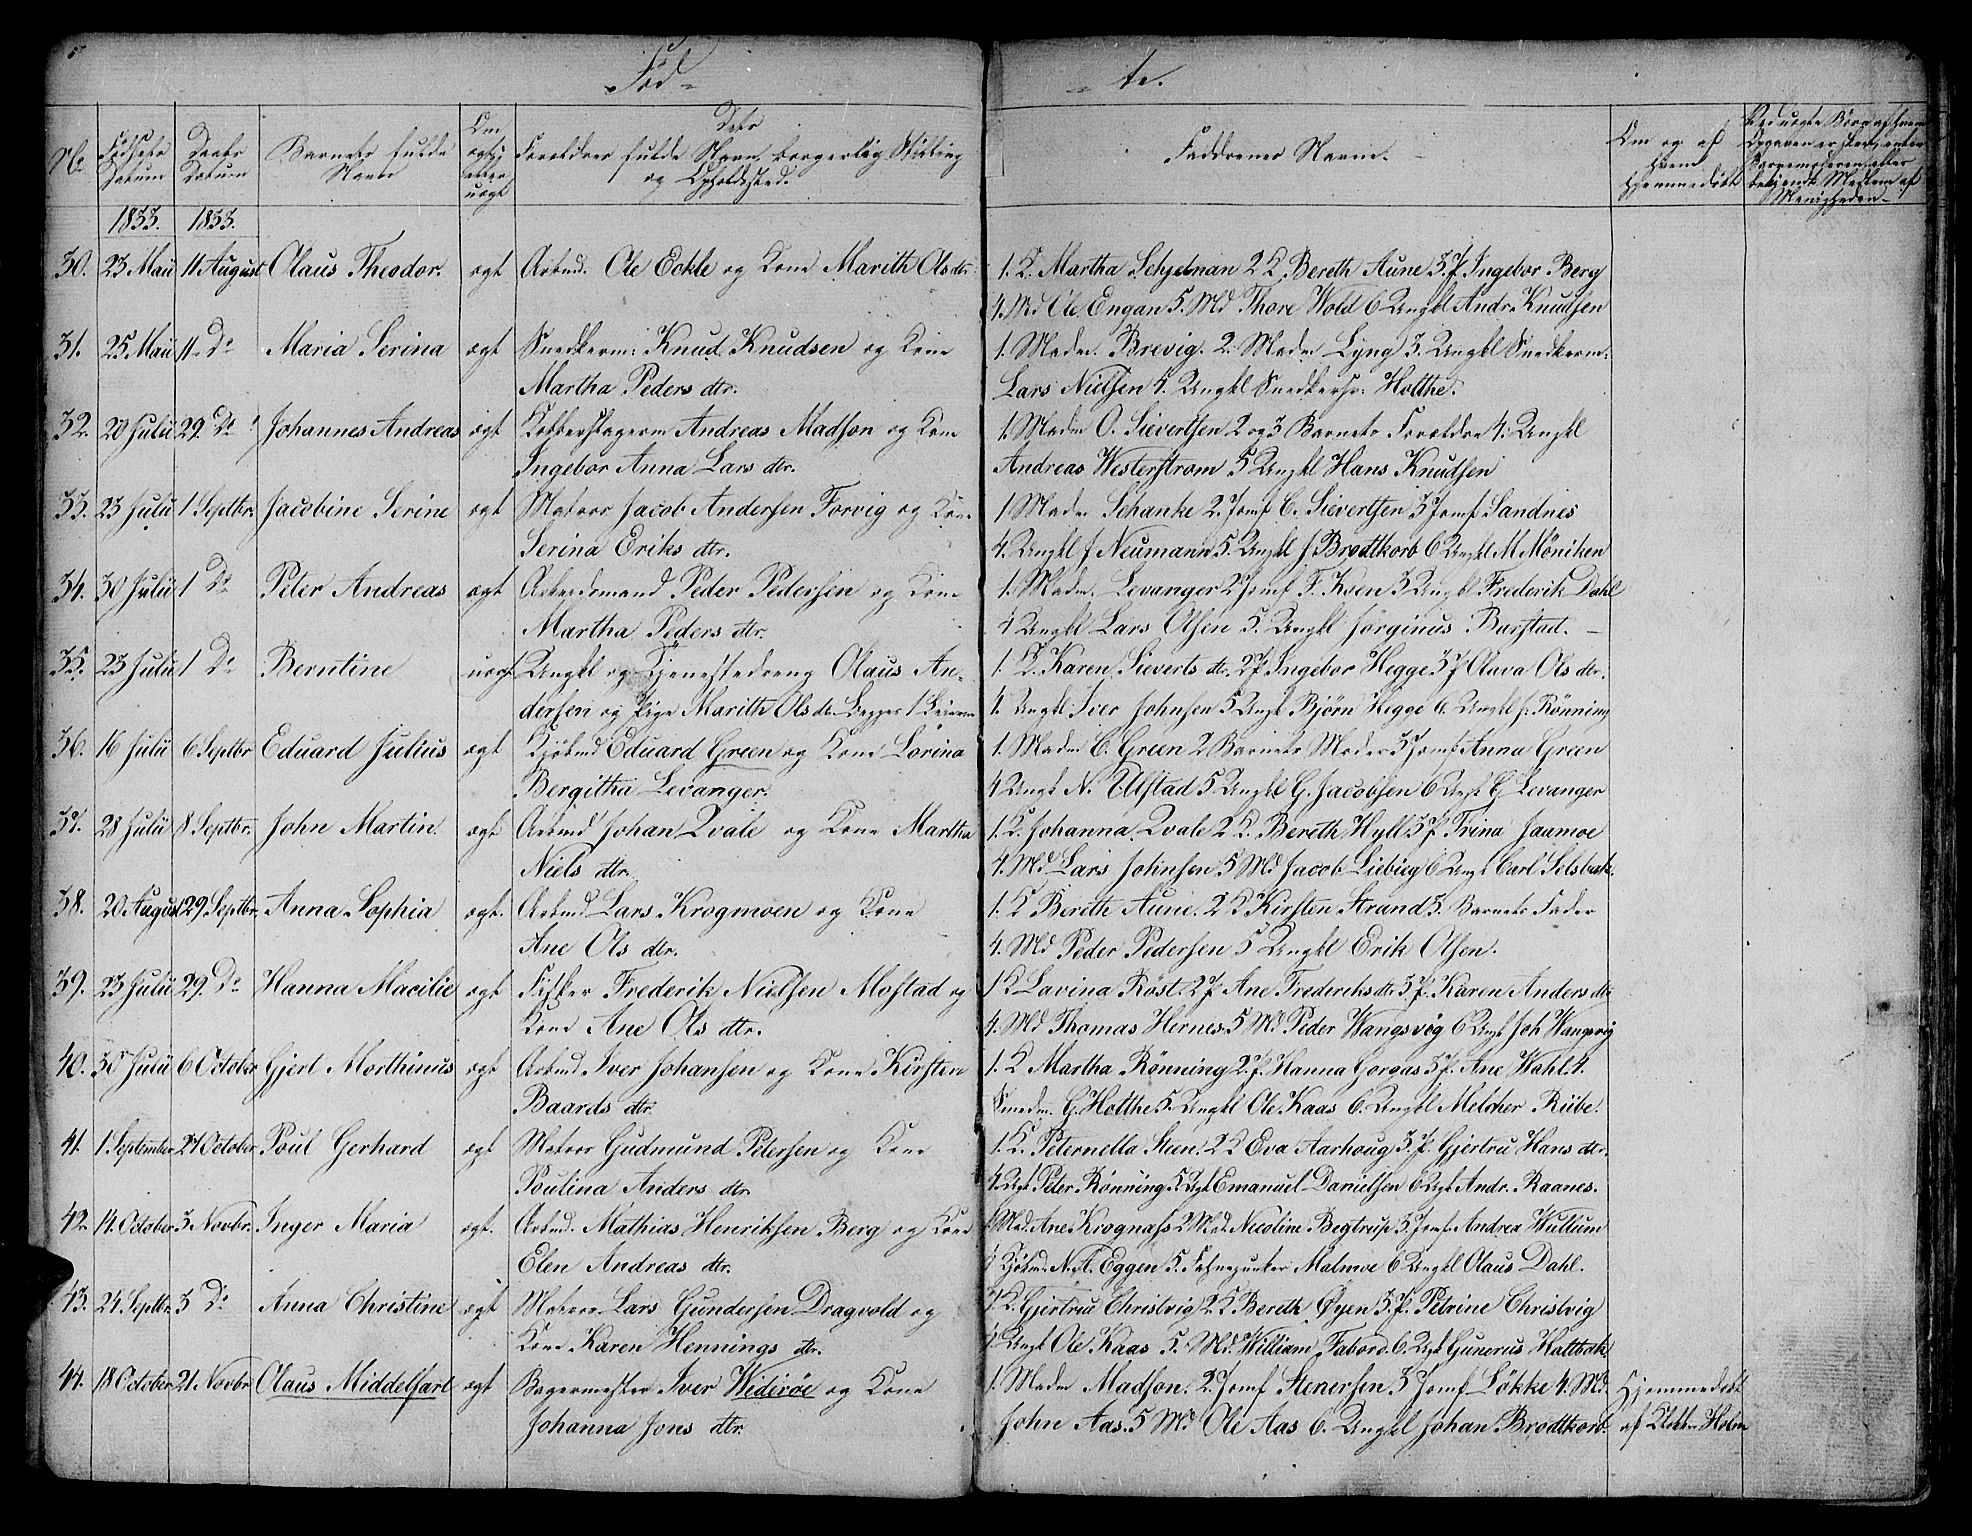 Fød-
-te.
No
Fødsels Datum
Daabs Datum
Barnets fulde Navn
Om ægte eller uægt
Dets Forældres fulde Navn borgerlig Stilling og Opholdssted.
Faddrenes Navne.
Om og af Hvem Hjemmedøbt
1833. 1833.
30. 23 Maii 11 August Olaus Theodor. ægt Arbmd. Ole Eckle og Kone Marith Ols dtr. 1. K. Martha Schjelnan 2 K Bereth Aune 3. P Ingebor Berg
4. Md Ole Engan 5. Md Thore Wold 6 Ungkl Andr. Knudsen
31. 25 Maii 11 Do Maria Serina ægt Snedkerm: Knud Knudsen og Kone 1. Madm. Brevig. 2. Madm Lyng 3. Ungkl Snedkerm.
Martha Peders dtr. Lars Nielsen 4. Ungkl Snedkersv. Holthe.
32. 20 Julii 29. Do Johannes Andreas ægt Kobberslagerm Andreas Madson og Kone 1. Madm O. Sivertsen 2 og 3 Barnets Forældre 4. Ungkl
Ingebor Anna Lars dtr. Andreas Westerstrøm 5 Ungkl Hans Knudsen
33. 23 Julii 1 Septbr. Jacobine Serine ægt Matros Jacob Andersen Forvig og Kone 1 Madm Schanke 2. Jomf C. Sievertsen 3 Jomf Sandnes
Serina Eriks dtr. 4. Ungkl J Neumann 5. Ungkl J Brodtkorb 6 Ungkl M Møniken
34. 30 Julii 1 Do Peter Andreas ægt Arbeidsmand Peder Pedersen og Kone 1. Madm. Levanger 2 Jomf F. Koen 3 Ungkl Frederik Dahl
Martha Peders dtr. 4 Ungkl Lars Olsen 5. Ungkl Jørginus Barstad.
35. 23 Julii 1 Do Berntine uægt Ungkl og Tjenestedreng Olaus An- 1. K. Karen Sieverts dtr. 2 P Ingebor Hegge 3 P Olava Ols dtr.
dersen og Pige Marith Ols dtr. Begges 1 Leierm 4. Ungkl Iver Johnsen 5 Ungk Bjørn Hegge 6. Ungkl J. Rønning
36. 16 Julii 6 Septbr Eduard Julius ægt Kjøbmd Eduard Green og Kone Lorina 1. Madm C. Green 2 Barnets Moder 3 Jomf Anna Green
Bergitha Levanger. 4 Ungk N. Ulstad 5 Ungkl G. Jacobsen 6 Ungk G Levanger
37. 28 Julii 8 Septbr. John Martin. ægt Arbmd Johan Qvale og Kone Martha 1. K. Johanna Qvale 2 K. Bereth Hyll 3 P Trina Jaamoe
Niels dtr. 4. Md Lars Johnsen 5 Md Jacob Liebieg 6 Ungk Carl Selsbak.
38. 20 August 29 Septbr. Anna Sophia ægt. Arbmd Lars Krogmoen og Kone 1. K Bereth Aune. 2 K Kirsten Strand 3. Barnets Fader
Ane Ols dtr. 4. Md Peder Pedersen 5 Ungkl Erik Olsen.
39. 23 Julii 29. Do Hanna Macilie ægt Fisker Frederik Nielsen Mostad og 1 K Lavina Røst. 2 P Ane Frederiks dtr 3 P. Karen Anders dtr
Kone Ane Ols dtr. 4. Md Thomas Hernes. 5 Md Peder Wangsvig 6 Ungk Joh Wangsvig
40. 30 Julii 6 October Gjert Morthinus ægt Arbmd Iver Johansen og Kone Kirsten 1. K Martha Rønning 2. P. Hanna Gorgas 3 P. Ane Wahl. 4.
Baards dtr. Smedm. G. Holthe 5. Ungkl Ole Kaas 6. Ungkl Melcher Rübe.
41. 1 September 27 October Poul Gerhard ægt Matros Gudmund Petersen og Kone 1. K. Peternella Steen. 2 K Eva Aarhoug 3. P. Gjertru Hans dtr.
Poulina Anders dtr. 4. Ungk Peter Rønning 5. Ugk Emanuel Danielsen 6 Ugk Andr. Raanes.
42. 14. October 3 Novbr. Inger Maria ægt. Arbmd. Mathias Henriksen Berg og Kone 1 Mad. Ane Krognæss 2 Mad. Nicoline Begtrup 3. Jomf. Andrea Wullum
Elen Andreas dtr. 4 Kjøbm. N. A. Eggen 5. Fahnejunker Malmoe 6 Ungkl Olaus Dahl.
43. 24. Septbr. 3 Do Anna Christine ægt Matros. Lars Gundersen Dragvold og 1. K. Gjertru Christvig 2 K Bereth Øyen 3. P. Petrine Christvig
Kone Karen Hennings dtr. 4. Ungk Ole Kaas 5. Md. William Fabord. 6. Ugk Gunerus Hattbak
44. 18 October 21 Novbr. Olaus Middelfart ægt Bagermester Iver Widerøe og Kone 1. Madm Madson. 2. Jomf Stenersen 3 Jomf Løkke 4. Md. Hjemmedøbt
Johanna Jons dtr. John Aas. 5 Md Ole Aas 6. Ungkl Johan Brodtkorb. af Klokker Holm